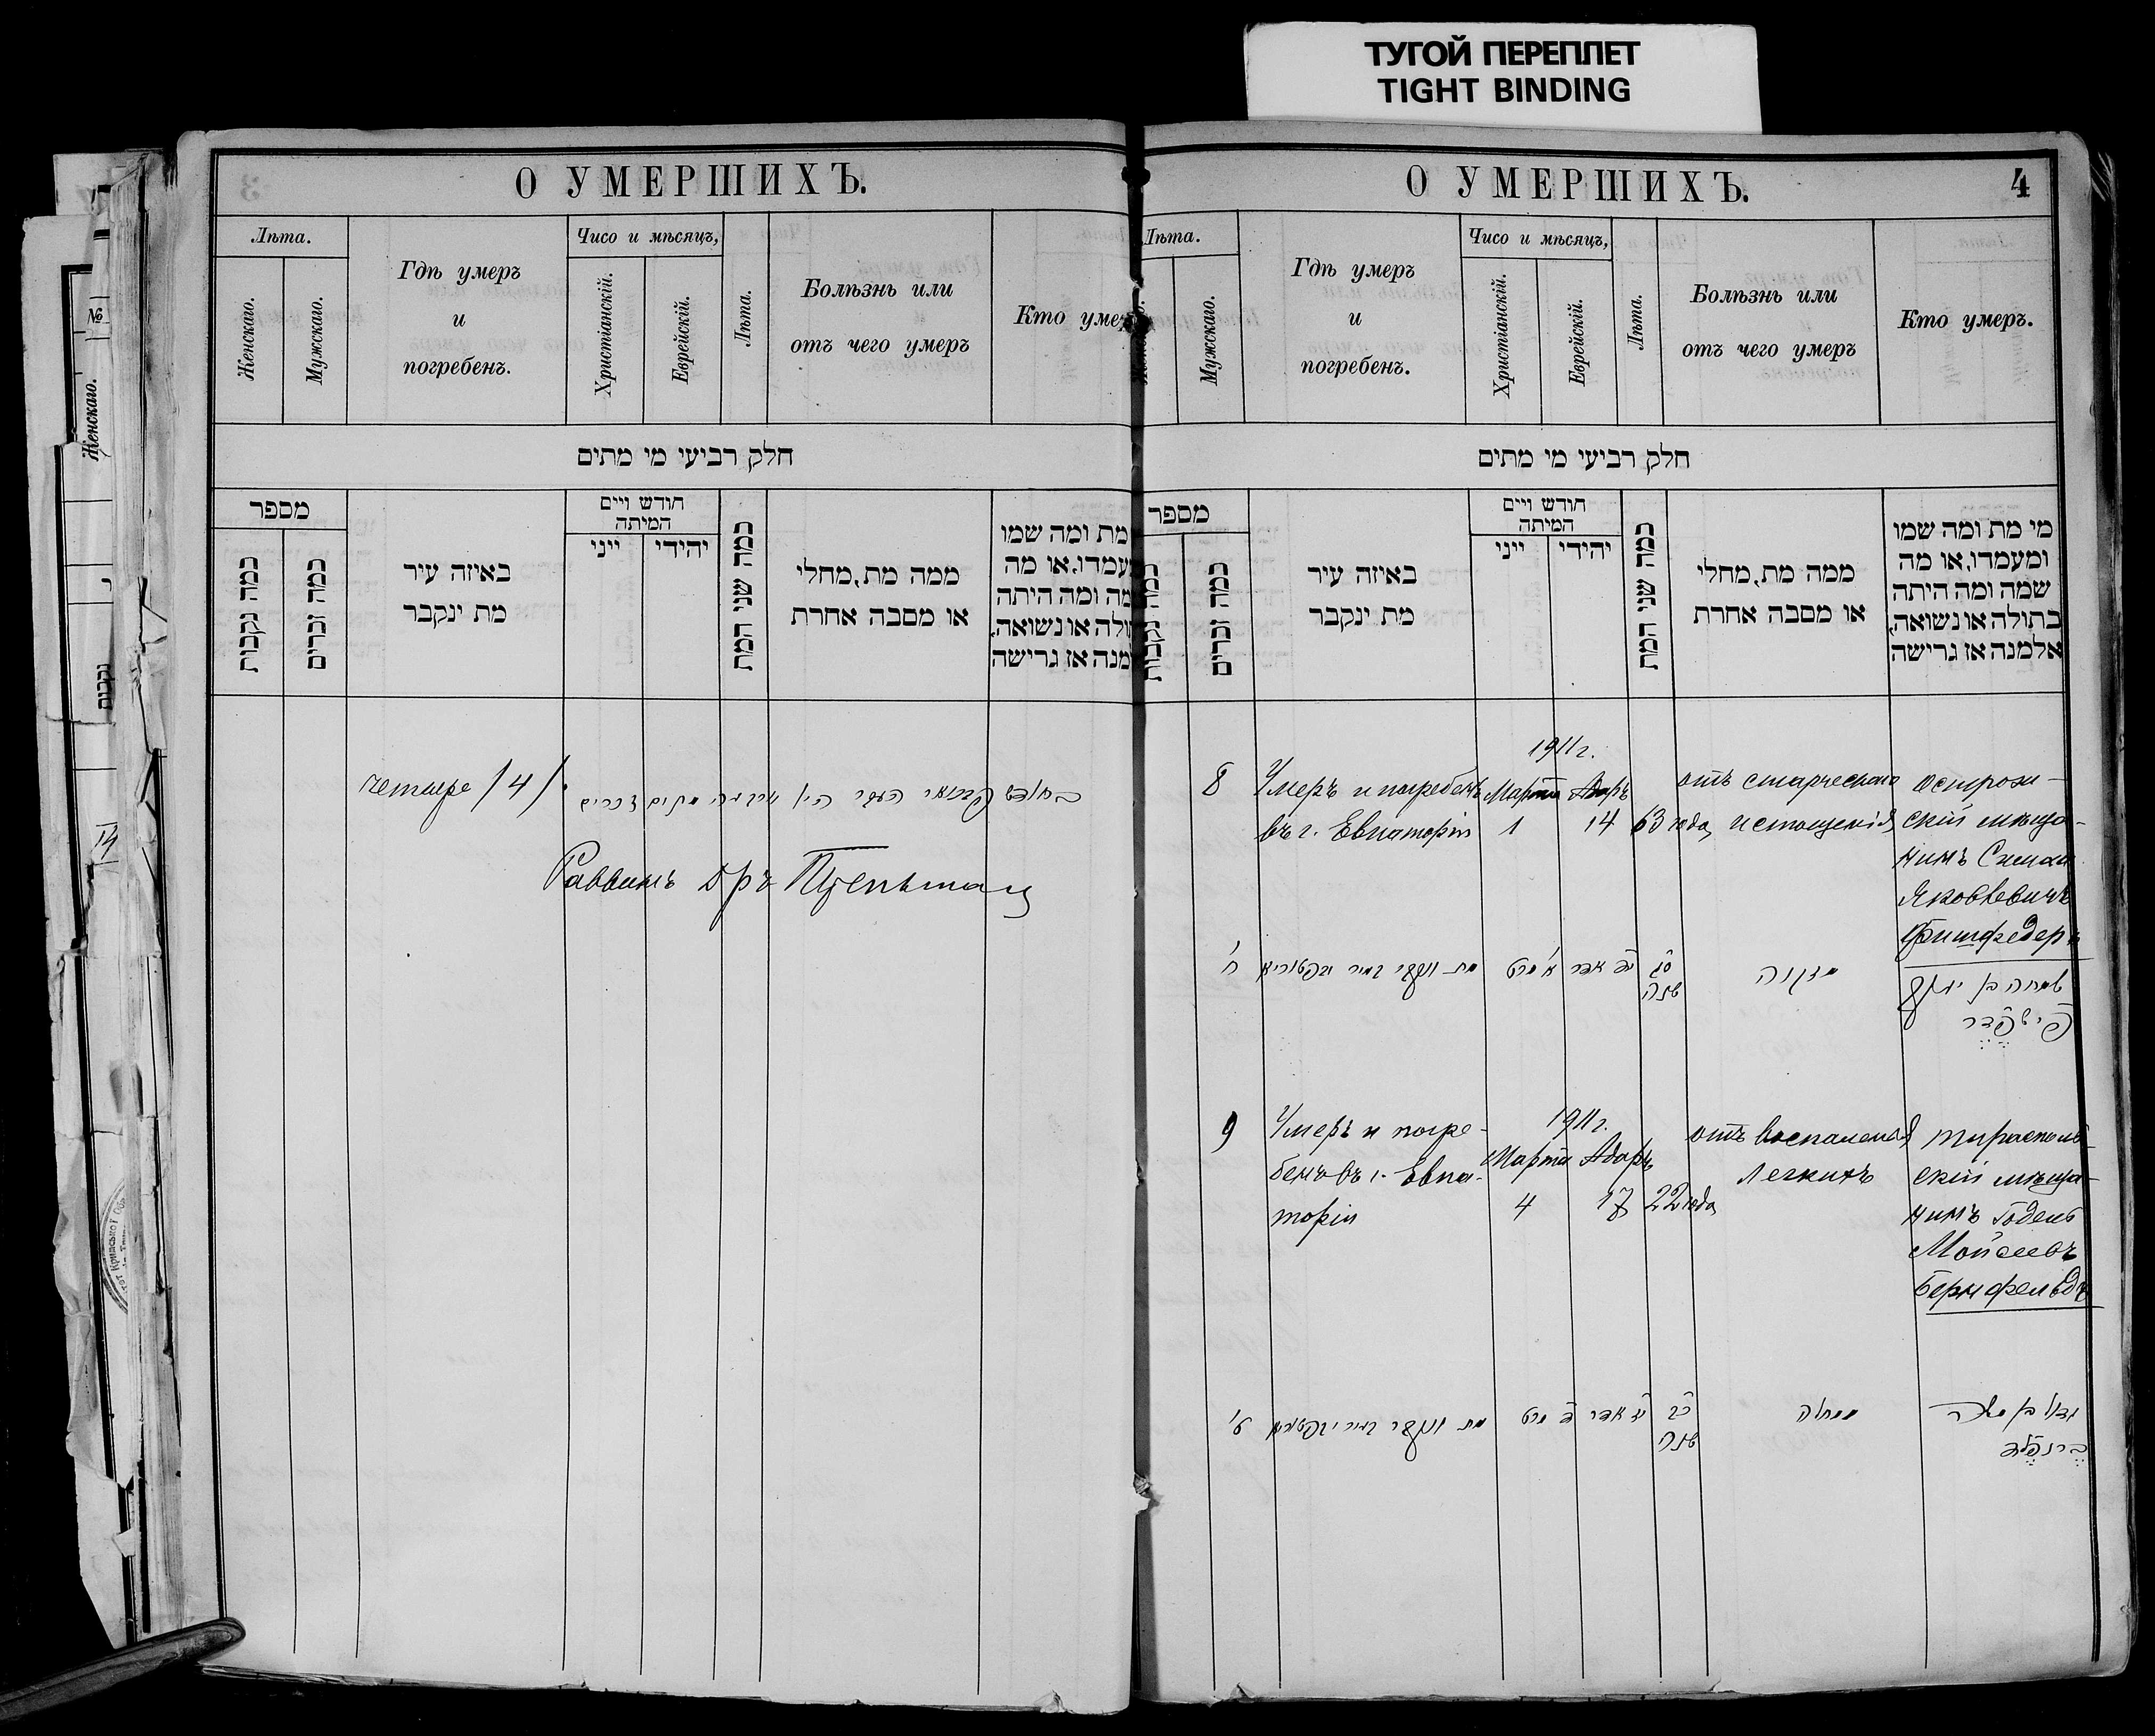 ТУГОЙ ПЕРЕПЛЕТ
TIGHT BINDING
О УМЕРШИХЪ.
Лѣта.
Женскаго.
Мужскаго.
Гдѣ умеръ
и
погребенъ.
Чисо и мѣсяцъ,
Христіанскій.
Еврейскій.
Лѣта.
Болѣзнь или
отъ чего умеръ
Кто умер
חלק רביעי מי מתים
מספר
כמה נקבות
כמה זכרים
באיזה עיר
מת ינקבר
חודש ויים
המיתה
ייני
יהידי
כמה שני המת
ממה מת, מחלי
או מסבה אחרת
מת ומה שמו
עמדו, או מה
מה ומה היתה
תולה או נשואה,
מנה אז גרישה
четыре /4/.
Раввинъ Др
О УМЕРШИХЪ.
4
Лѣта.
Мужскаго.
Гдѣ умеръ
и
погребенъ.
Чисо и мѣсяцъ,
Христіанскій.
Еврейскій.
Лѣта.
Болѣзнь или
отъ чего умеръ
Кто умеръ.
חלק רביעי מי מתים
מספר
כמה נקבות
כמה זכרים
באיזה עיר
מת ינקבר
חודש ויים
המיתה
ייני
יהידי
כמה שני המת
ממה מת, מחלי
או מסבה אחרת
מי מת ומה שמו
ומעמדו, או מה
שמה ומה היתה
בתולה או נשואה,
אלמנה אז גרישה
8
Умеръ и погребенъ
въ г. Евпаторіи
1911 г.
Марта Адаръ
1 14
63 года
отъ старческаго
истощенія
острож-
скій мѣща-
нинъ Симха
Яковлевичъ
Фишфедеръ
ח'
מת ונקבר בעיר
א' מרט
יד אדר
סג
שנה
מזקנה
שמחה בן יעקב
פישפעדר
9
Умеръ и погре-
бенъ въ г. Евпа-
торіи
1911 г.
Марта Адаръ
4 17
22 года
отъ воспаленія
легкихъ
тирасполь-
скій мѣща-
нинъ Годель
Мойсеевъ
Бернфельдъ
ט'
מת ונקבר בעיר
ד מרט
יז אדר
כב
שנה
ממחלה
בן משה